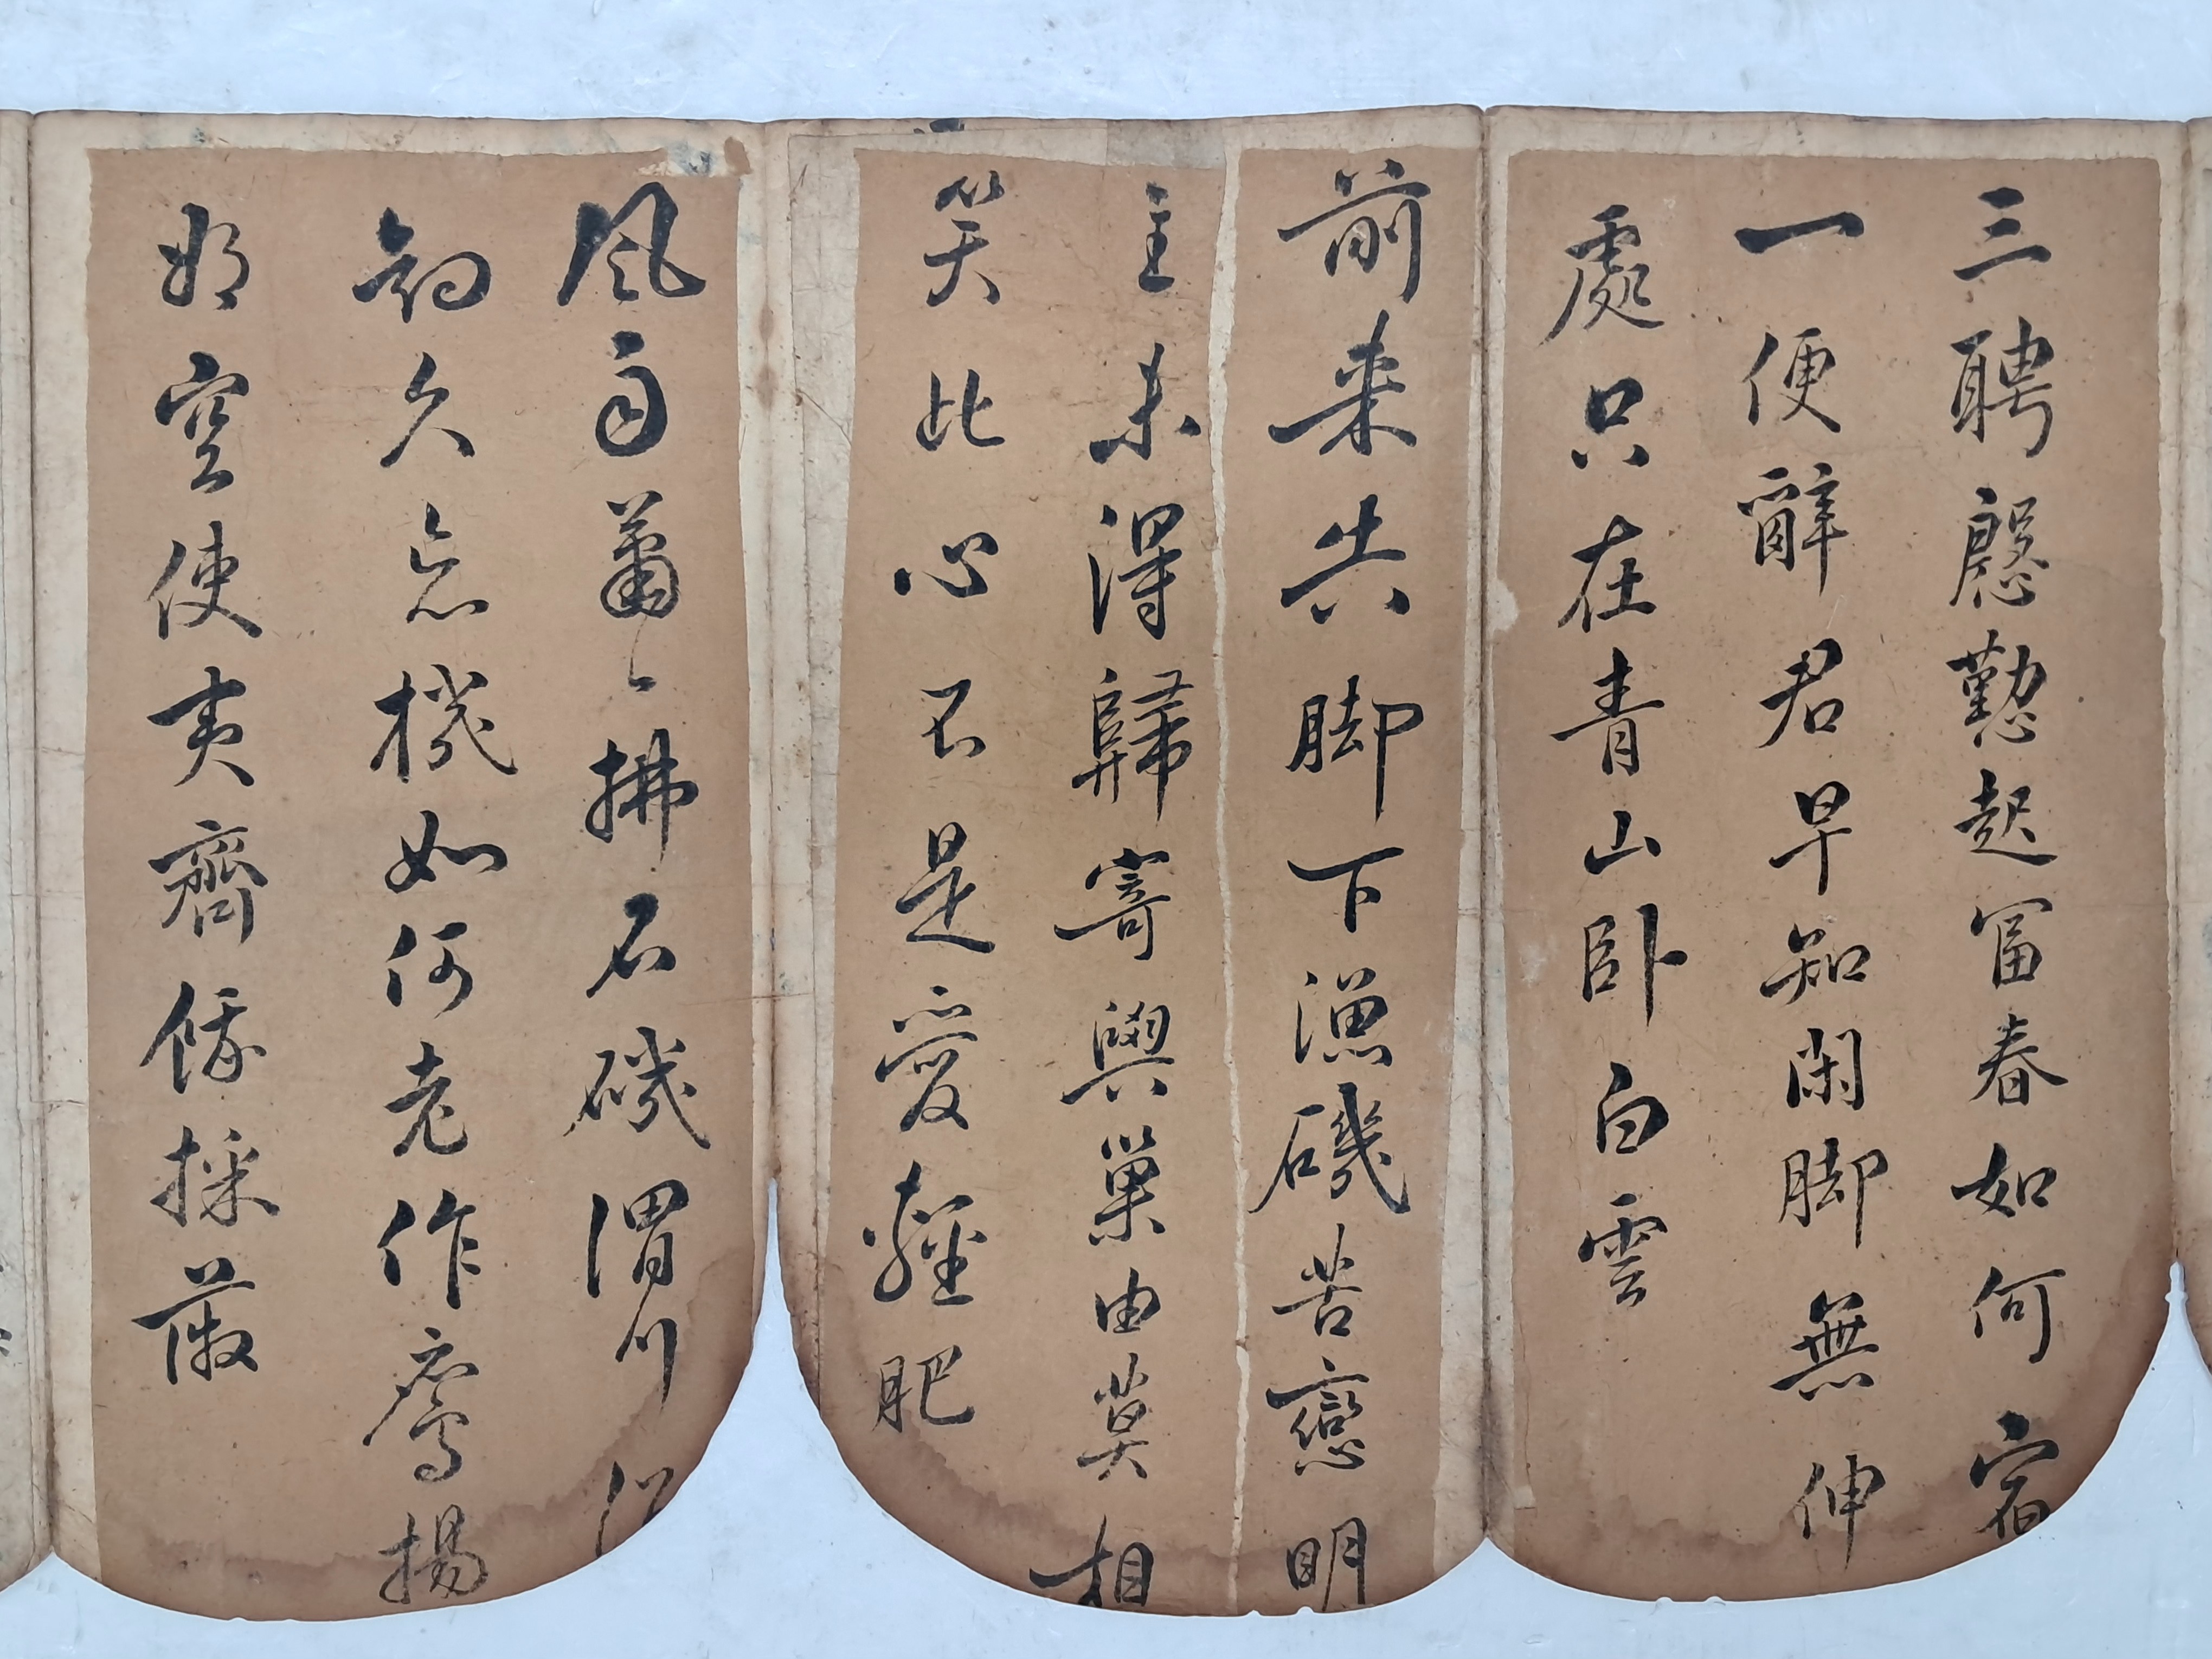 三聘慇懃起富春如何宿
一便辭君早知閑脚無伸
處只在青山臥白雲
前来共脚下漁磯苦戀明
主未得歸寄與巢由莫相
笑此心不是愛輕肥
風雨蕭〻拂石磯渭川
釣久忘機如何老作鷹揚
將空使夷齊餓採薇